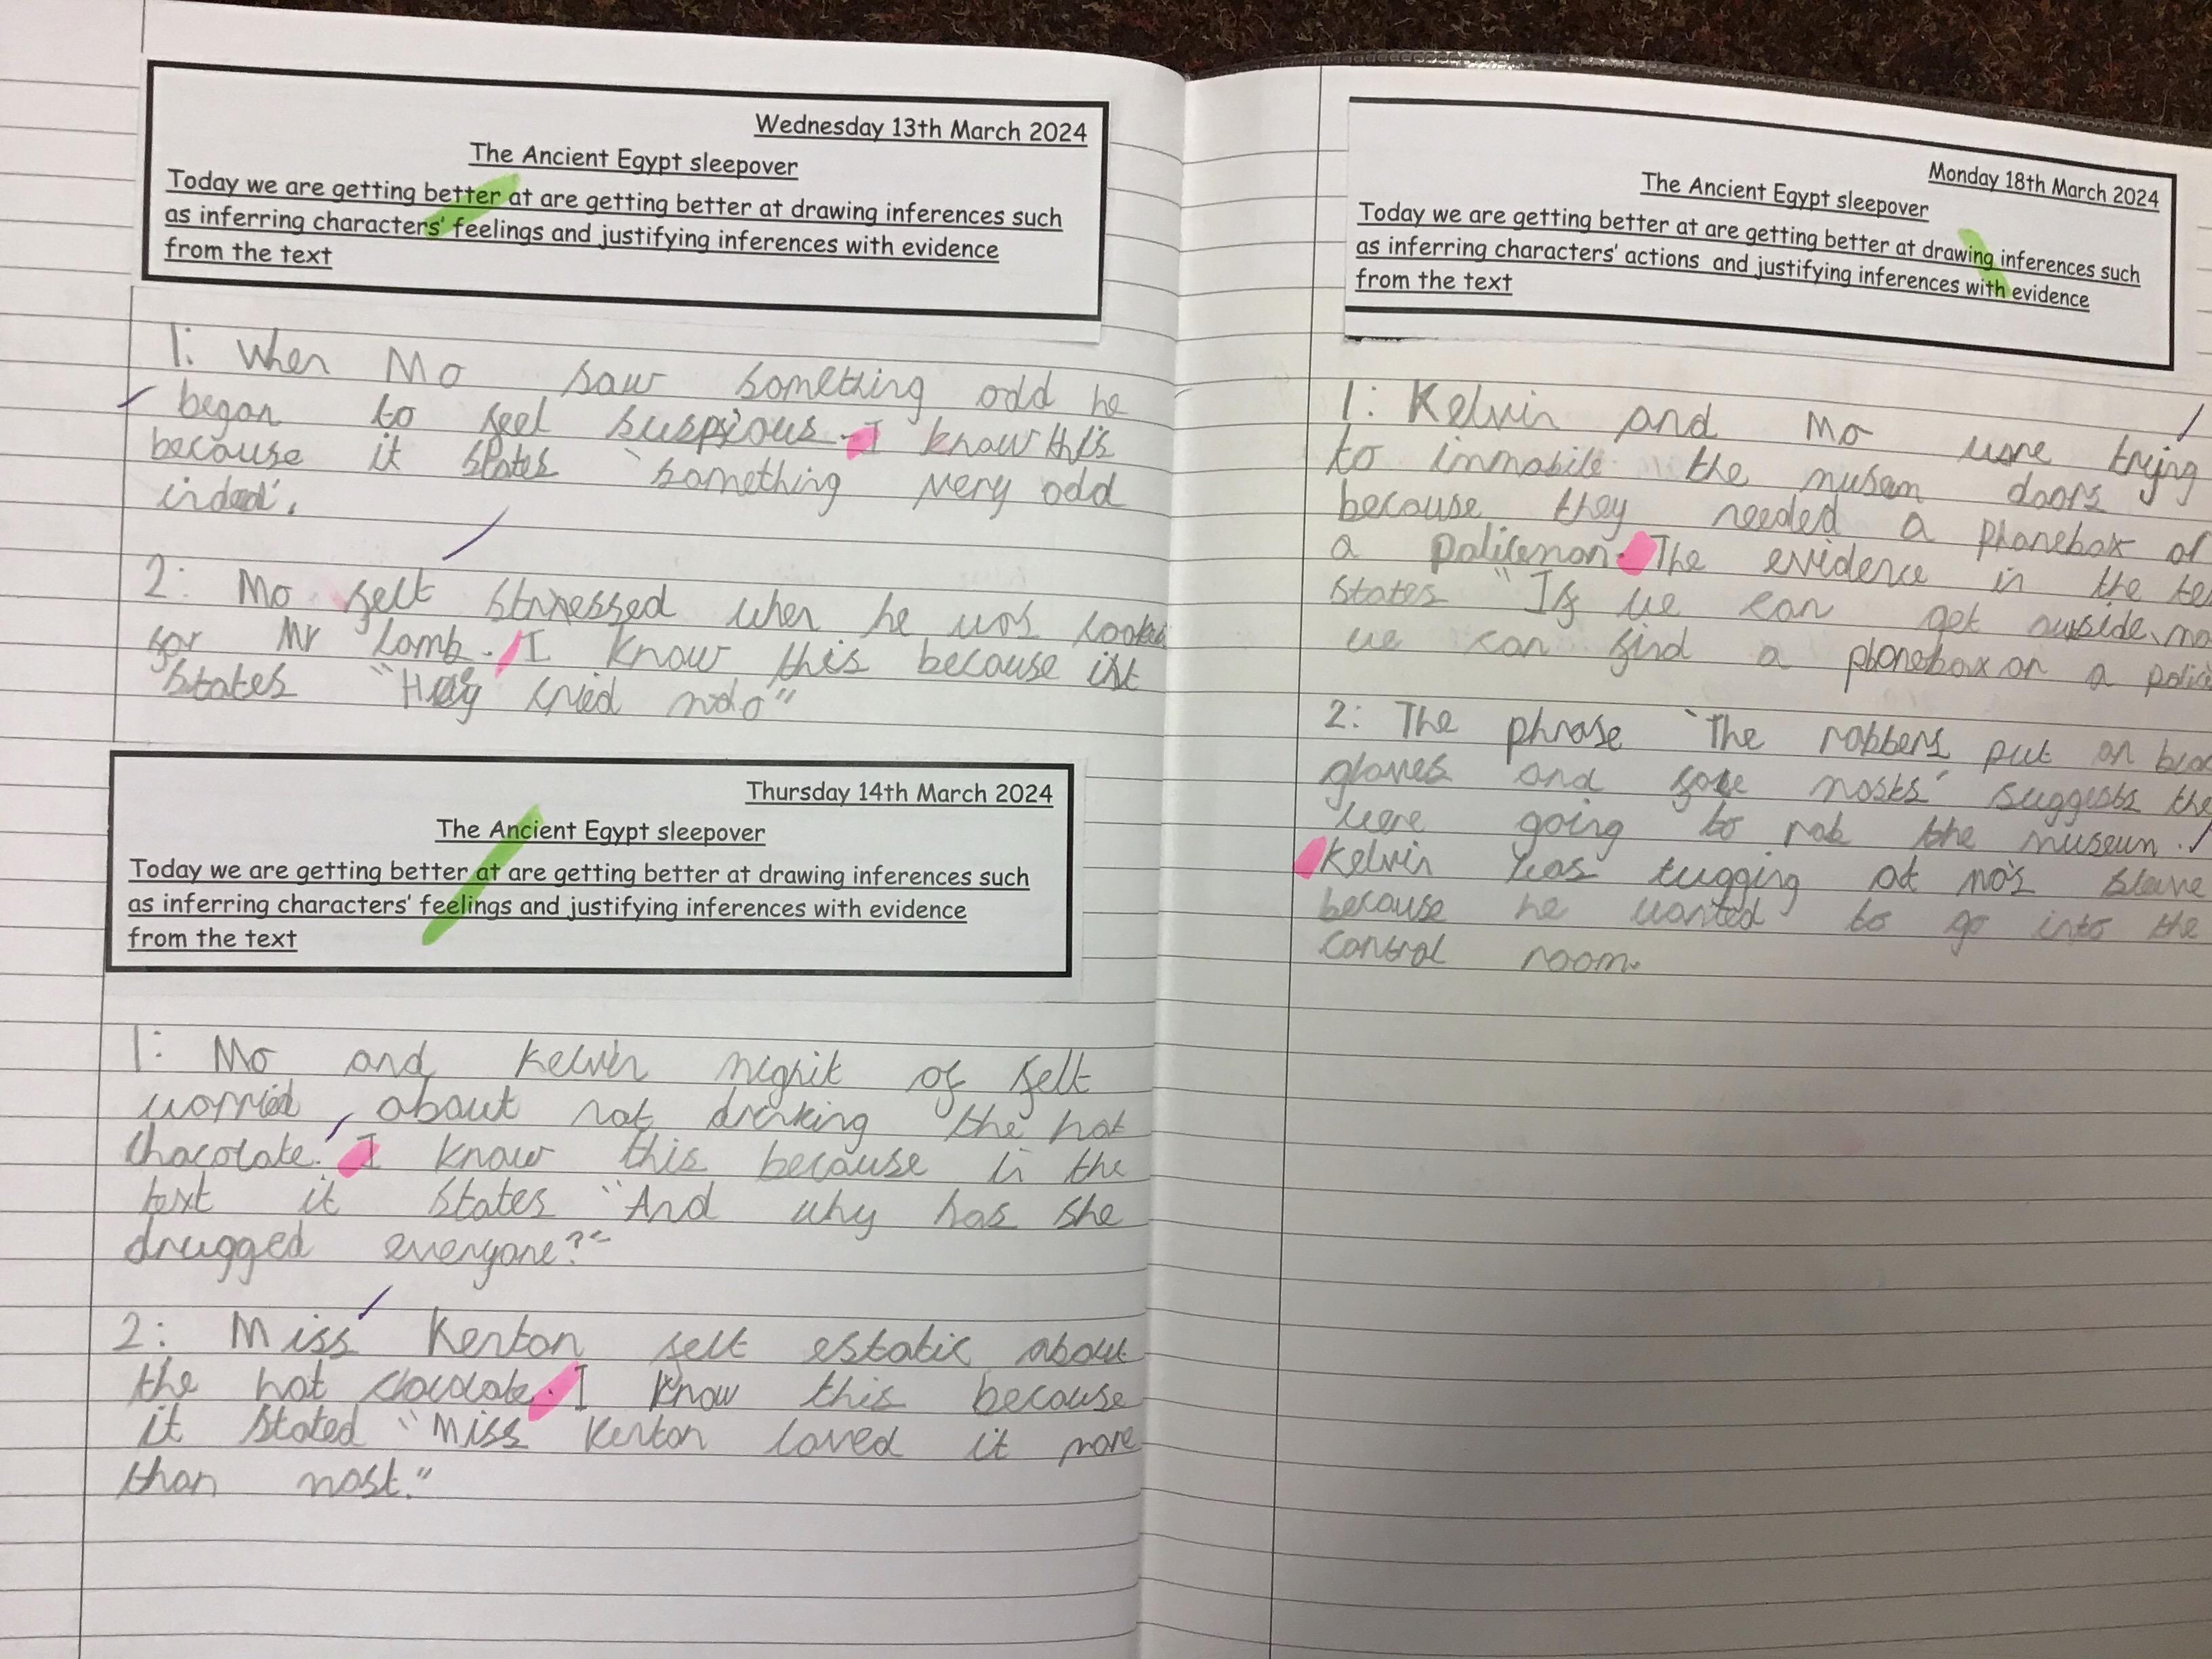 Wednesday 13th March 2024
The Ancient Egypt sleepover
Today we are getting better at are getting better at drawing inferences such
as inferring characters' feelings and justifying inferences with evidence
from the text
1: When Mo saw something odd he
began to feel suspsious. I know this
because it states "something very odd
indeed'.
2: Mo felt stressed when he was
for Mr Lamb. I know this because it
states "Hey cried
Thursday 14th March 2024
The Ancient Egypt sleepover
Today we are getting better at are getting better at drawing inferences such
as inferring characters' feelings and justifying inferences with evidence
from the text
1: Mo and Kelvin of felt
worried about not drinking the hot
chocolate. I know this because in the
text it states "And why has she
drugged everyone?"
2: Miss Kenton felt estatic about
the hot choclate. I know this because
it stated "Miss Kenton loved it more
than most."
Monday 18th March 2024
The Ancient Egypt sleepover
Today we are getting better at are getting better at drawing inferences such
as inferring characters' actions and justifying inferences with evidence
from the text
1: Kelvin and Mo were trying
to immobile the musem doors
because they needed a phonebox or
a policeman. The evidence in the
states "If we can get
we can find a phonebox or a
2: The phrase 'The robbers put on
gloves and face masks' suggests
were going to rob the museum.
Kelvin was tugging at mo's
because he wanted to go into the
control room.